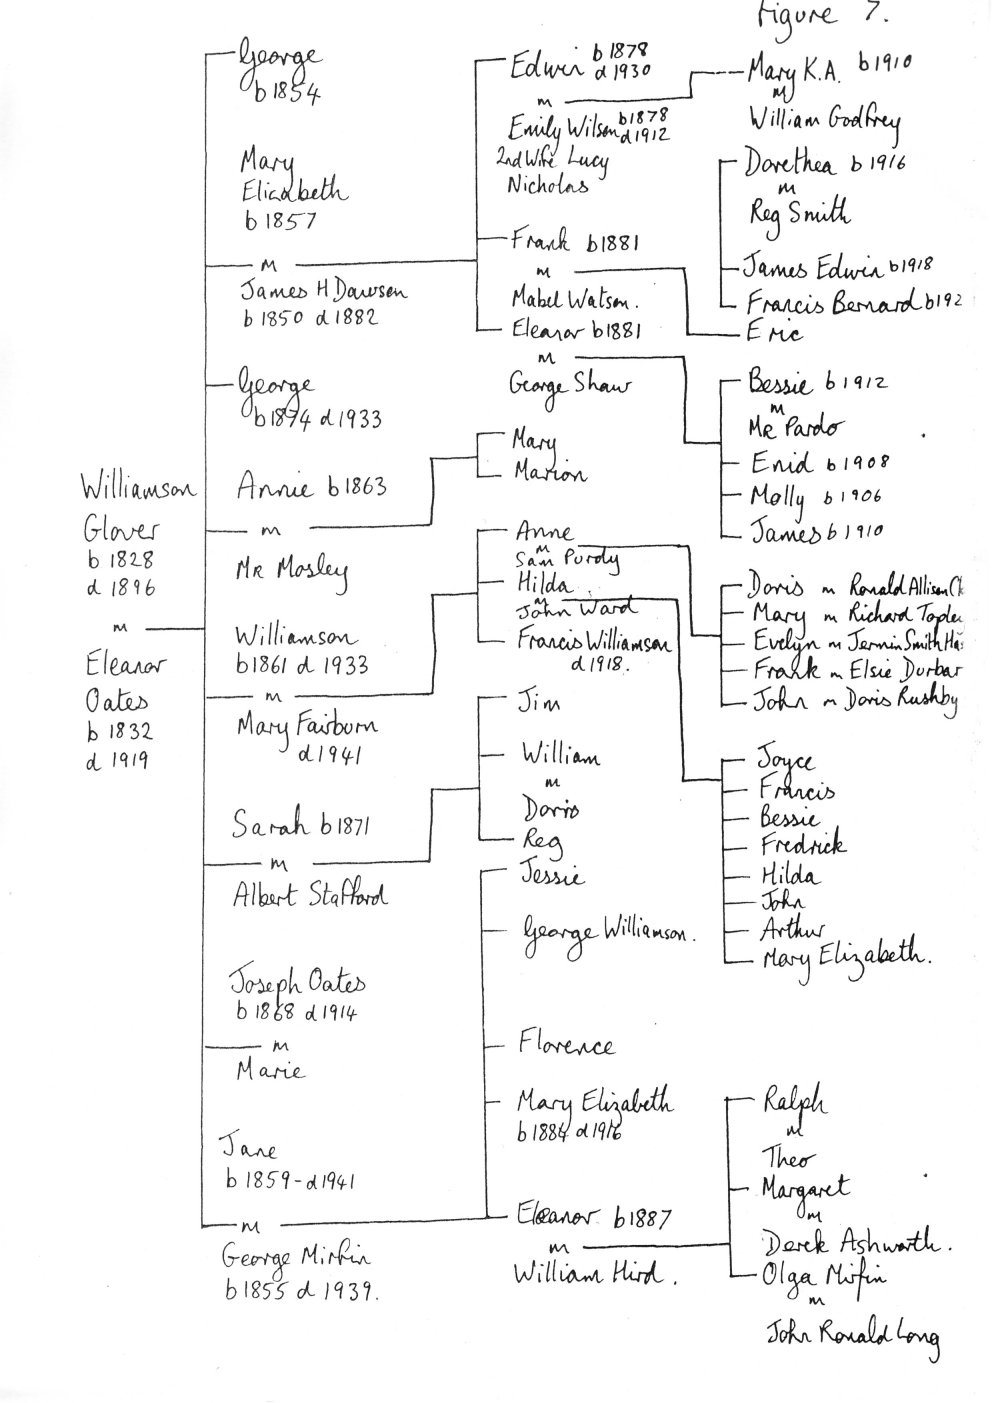 Figure 7.
Williamson
Glover
b 1828
d 1896
m
Eleanor
Oates
b 1832
d 1919
George
b 1854
Mary
Elizabeth
b 1857
m
James H Dawson
b 1850 d 1882
George
b 1874 d 1933
Annie b 1863
m
Mr Mosley
Williamson
b 1861 d 1933
m
Mary Fairburn
d 1941
Sarah b 1871
m
Albert Stafford
Joseph Oates
b 1868 d 1914
m
Marie
Jane
b 1859 - d 1941
m
George Mirfin
b 1855 d 1939.
Edwin b 1878
d 1930
m
Emily Wilson b 1878
d 1912
2nd Wife Lucy
Nicholas
Frank b 1881
m
Mabel Watson.
Eleanor b 1881
m
George Shaw
Mary
Marion
Anne
m
Sam Purdy
Hilda
m
John Ward
Francis Williamson
d 1918.
Jim
William
m
Doris
Reg
Jessie
George Williamson.
Florence
Mary Elizabeth
b 1884 d 1916
Eleanor b 1887
m
William Hird.
Mary K.A. b 1910
m
William Godfrey
Dorethea b 1916
m
Reg Smith
James Edwin b 1918
Francis Bernard b 192
Eric
Bessie b 1912
m
Mr Pardo
Enid b 1908
Molly b 1906
James b 1910
Doris m Ronald Allison
Mary m Richard
Evelyn m Jermin Smith
Frank m Elsie Durbar
John m Doris Rushby
Joyce
Francis
Bessie
Fredrick
Hilda
John
Arthur
Mary Elizabeth.
Ralph
m
Theo
Margaret
m
Derek Ashworth.
Olga Mirfin
m
John Ronald Long